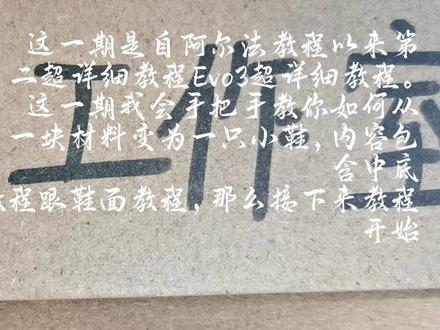 这一期是自阿尔法教程以来第
二超详细教程Evo3超详细教程。
这一期我会手把手教你如何从
一块材料变为一只小鞋，内容包
含中底
程跟鞋面教程，那么接下来教程
开始
工作室